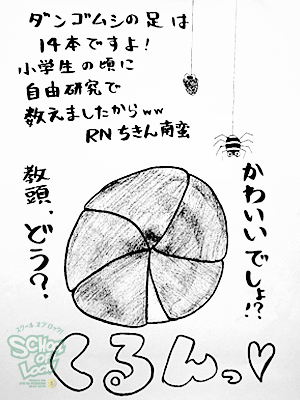 ダンゴムシの足は
14本ですよ！
小学生の頃に
自由研究で
数えましたからww
RNちきん南蛮
かわいいでしょ!?
教頭、どう？
スクール オブ ロック！
SCHOOL
OF
LOCK!
くるんっ♡